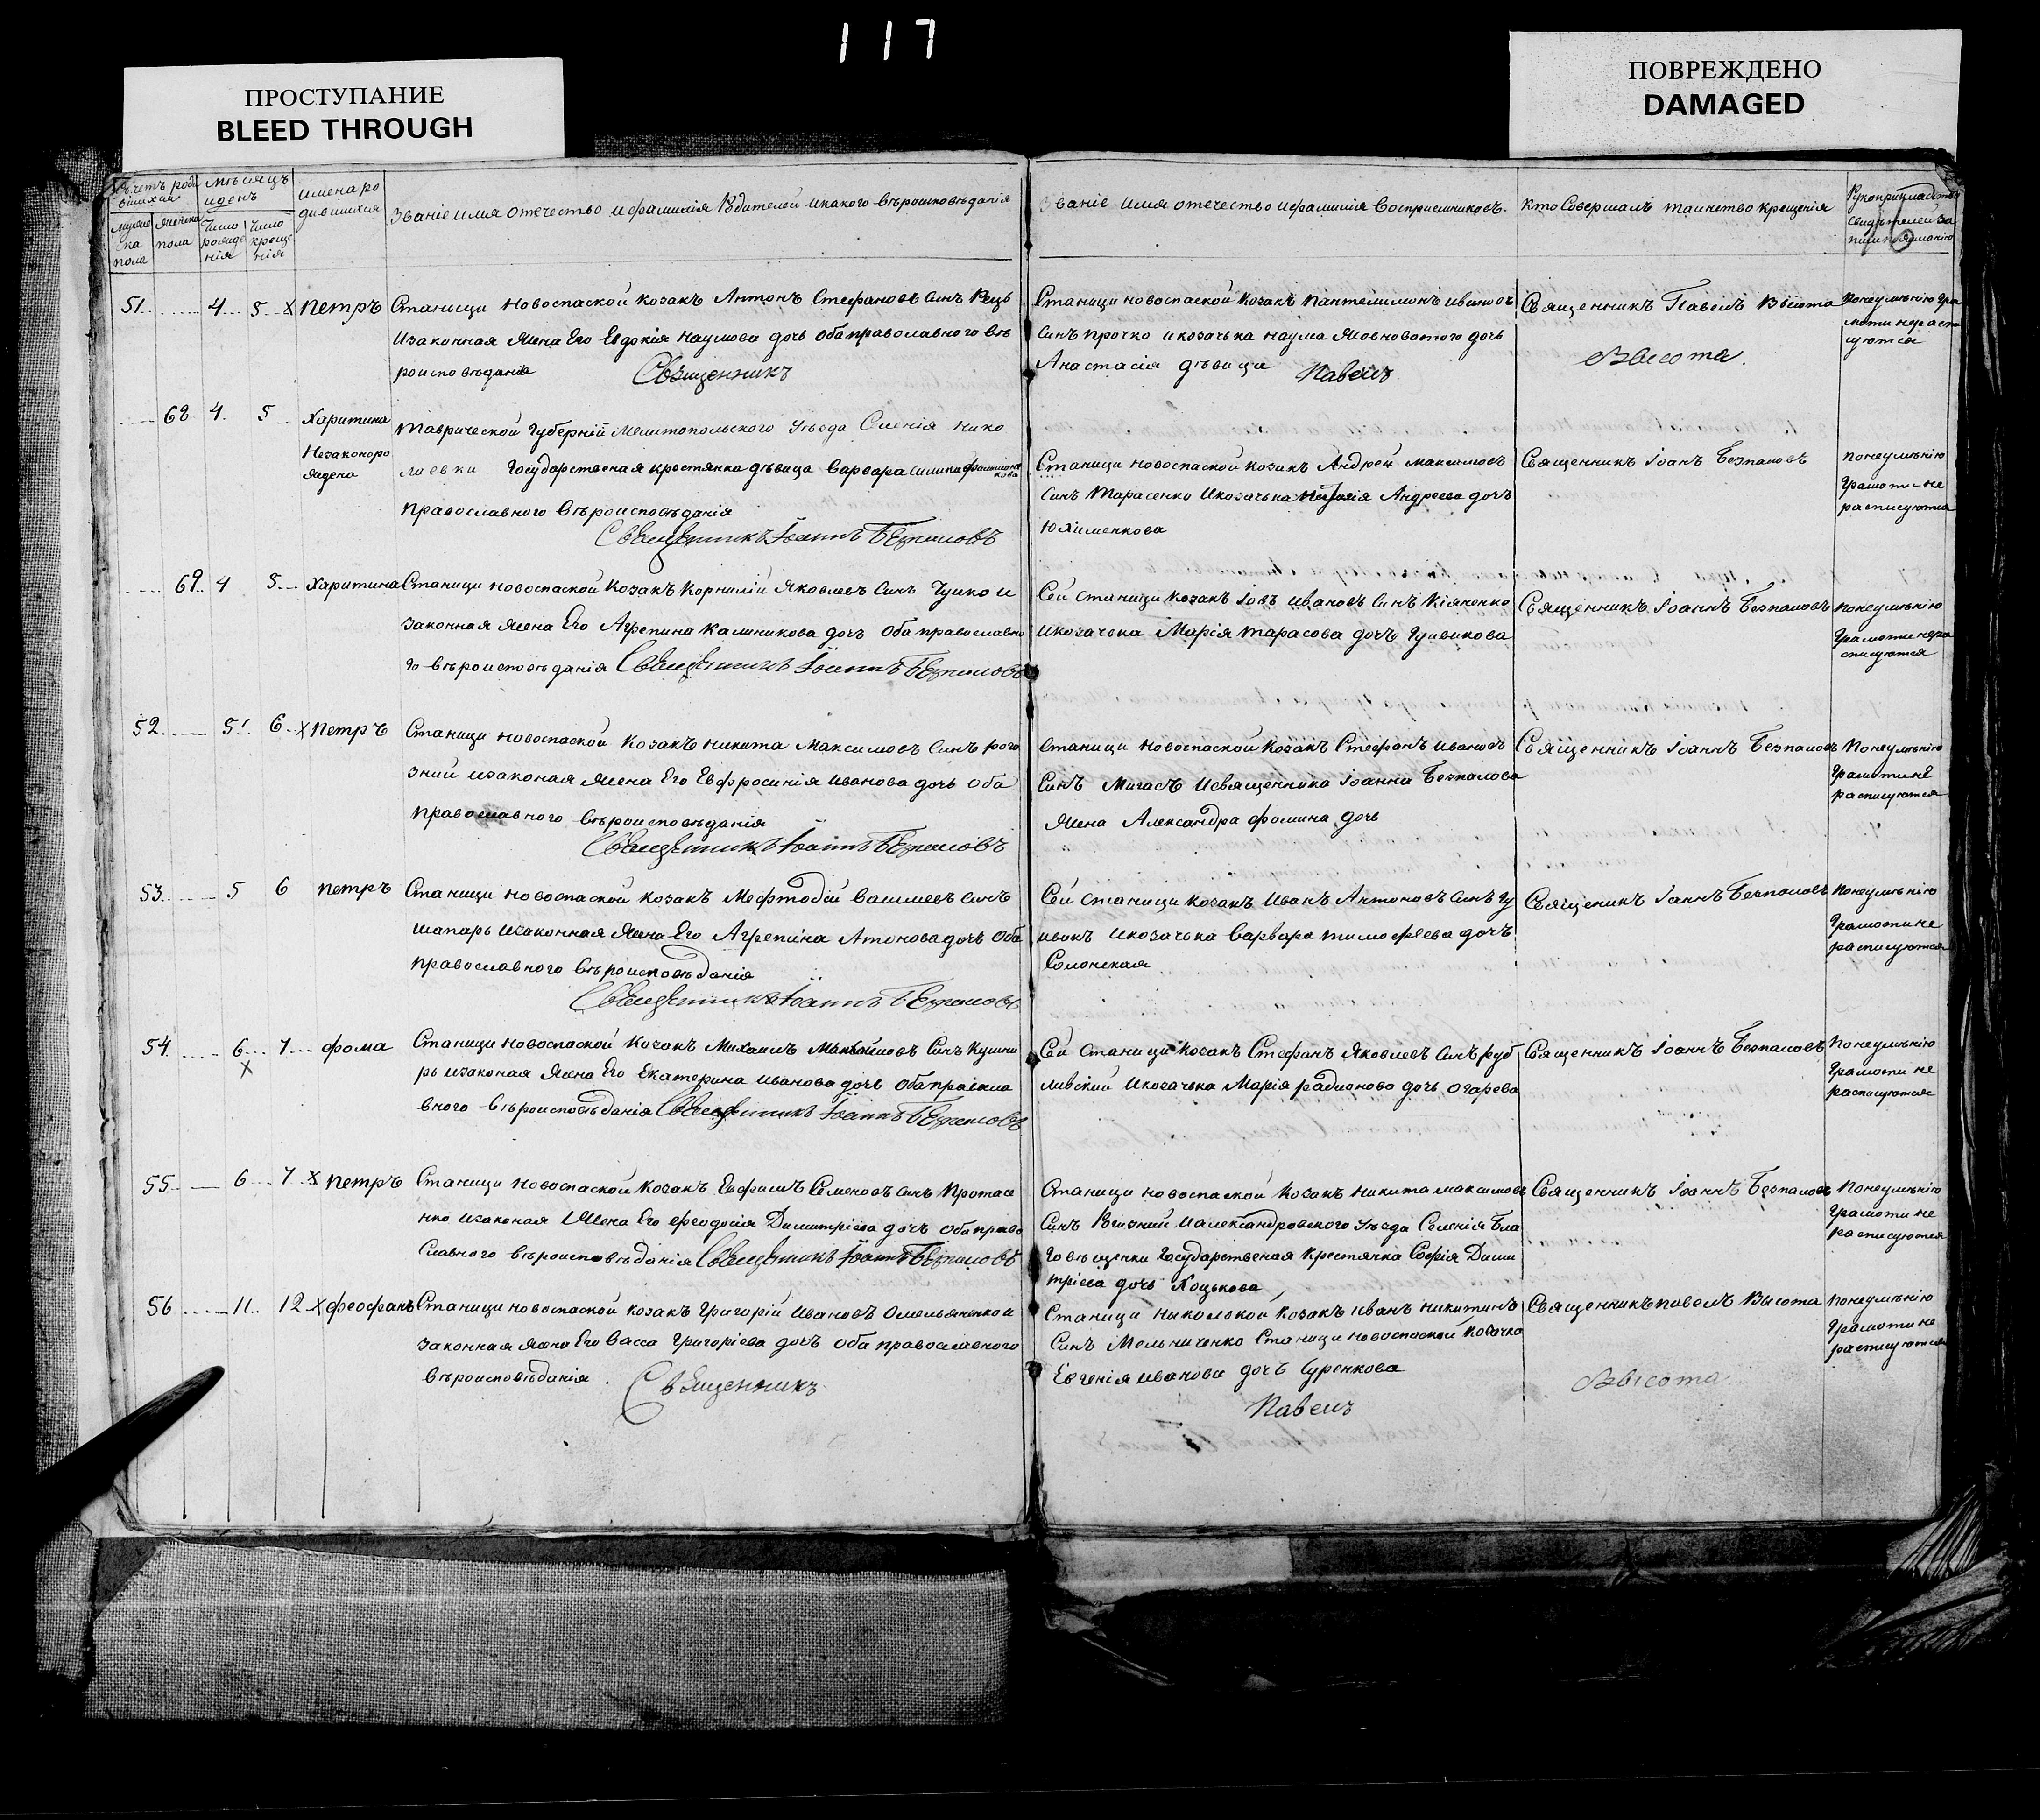 117
ПРОСТУПАНИЕ
BLEED THROUGH
ПОВРЕЖДЕНО
DAMAGED
Мѣсяцъ
и день
имена ро
дившихся
Званіе имя отечество и фамилія Родителей и какого вѣроисповѣданія
Званіе имя отечество и фамилія Восприемниковъ.
Кто Совершалъ таинство крещенія
Рукоприкладство
муже
ска
пола
женска
пола
Число
рожде
нія
Число
креще
нія
51 4 5 X Петръ Станыци Новоспаской козакъ Антонъ Стефановъ Синъ
Изаконная Жена Его Евдокія Наумова дочь Оба православного вѣ
роисповѣданія Священникъ
Станици новоспаской Козакъ Пантелимонъ ивановъ
Синъ прочко и козачька наума дочь
Анастасія дѣвица Павелъ
Священникъ Павелъ Высота
Высота
Понеумѣнію гра
моти нераспи
суются
68 4 5 Харитина
Незаконоро
ждена
Таврической Губерніи Мелитопольского Уѣзда Селенія Нико
лаевки Государственая крестянка дѣвица Варвара
Православного вѣроисповѣданія
Священникъ Іоаннъ Безпаловъ
Станици новоспаской козакъ Андрей максимовъ
Синъ Тарасенко Икозачька Андреева дочъ
Юхименкова
Священникъ Іоанъ Безпаловъ
Понеумѣнію
Грамоти не
расписуются
69 4 5 Харитина Станици новоспаской Козакъ Корнилій Яковлевъ Синъ Чуйко и
законная жена Его Агрепина Калиникова дочъ Оба православно
го вѣроисповѣданія Священникъ Іоаннъ Безпаловъ
Сей станици козакъ Іовъ Ивановъ Синъ Кіяненко
Икозачька Марія тарасова дочъ
Священникъ Іоаннъ Безпаловъ
Понеумѣнію
Грамоти нера
списуются
52 5 6 X Петръ Станици новоспаской Козакъ никита Максимовъ Синъ рого
зний изаконая жена Его Евфросинія Иванова дочь Оба
православного вѣроисповѣданія
Священникъ Іоаннъ Безпаловъ
Станици новоспаской Козакъ Стефанъ ивановъ
Синъ Мигасъ Исвященника Іоанна Безпалова
Жена Александра фомина дочь
Священникъ Іоаннъ Безпаловъ
Понеумѣнію
Грамоти не
расписуются
53 5 6 петръ Станици новоспаской козакъ Мефтодій Василевъ синъ
шапарь изаконная Жена Его Агрепина дочь Оба
Православного вѣроисповѣданія
Священникъ Іоаннъ Безпаловъ
Сей станици козакъ Иванъ Антоновъ Синъ
Икозачька варвара тимофеева дочъ
Солонская
Священикъ Іаннъ Безпаловъ
Понеумѣнію
Грамоти не
расписуются
54 6 X 7 фома Станици новоспаской Козакъ Михаилъ Синъ Кушни
рь изаконая Жена Его Екатерина иванова дочь Оба
вного вѣроисповѣданія Священникъ Іоаннъ Безпаловъ
Сей станици козакъ Стефанъ Яковлевъ Синъ руб
ливский Икозачька Марія радионова дочь Огарева
Священникъ Іоаннъ Безпаловъ
Понеумѣнію
Грамоти не
расписуются
55 6 7 X петръ Станици новоспаской Козакъ Семеновъ синъ Протасе
нко изаконая Жена Его феодосія Димитріева дочъ Оба право
славного вѣроисповѣданія Священникъ Іоаннъ Безпаловъ
Станици новоспаской Козакъ никита максимовъ
Синъ Иалександровского Уѣзда Селенія Бла
говѣщенки Государственая Крестячка Софія Дими
тріева дочь Коцькова
Священникъ Іоаннъ Безпаловъ
Понеумѣнію
Грамоти не
расписуются
56 11 12 X феофанъ Станици новоспаской козакъ Григорій Ивановъ Омельяненко и
законная жена Его Васса Григоріева дочъ Оба православного
вѣроисповѣданія. Священникъ
Станици Козакъ Иванъ Никитинъ
Синъ Мельниченко Станици новоспаской Козачка
Евгенія иванова дочъ Суренкова
Павелъ
Священникъ павелъ Высота
Высота
Понеумѣнію
Грамоти не
расписуются